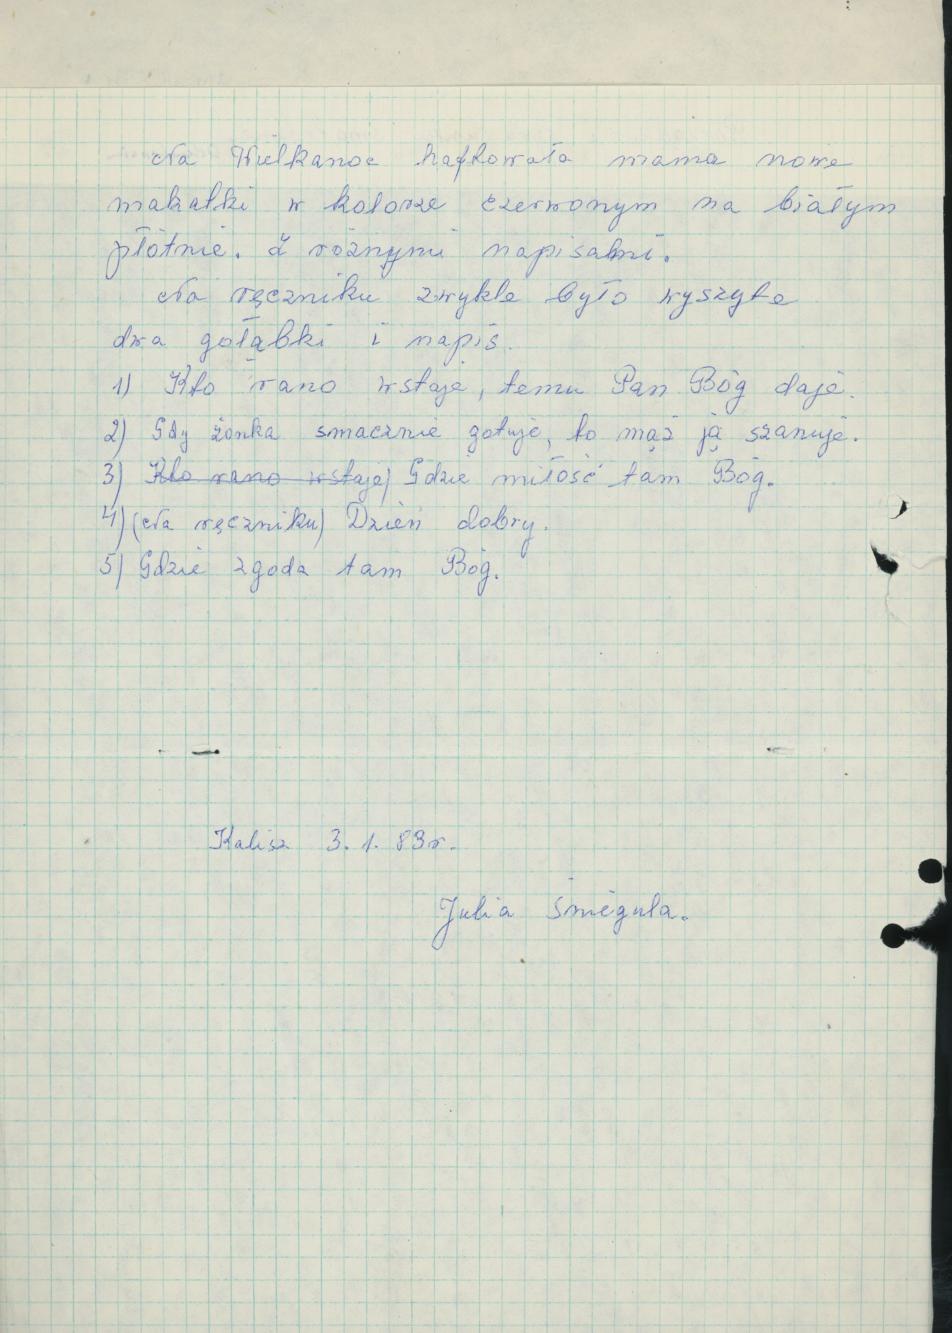 Na Wielkanoc haftowała mama nowe
makatki w kolorze czerwonym na białym
płótnie. Z różnymi napisami.
Na ręczniku zwykle było wyszyte
dwa gołąbki i napis.
1) Kto rano wstaje, temu Pan Bóg daje.
2) Gdy żonka smacznie gotuje, to mąż ją szanuje.
3) Kto rano wstaje) Gdzie miłość tam Bóg.
4) (Na ręczniku) Dzień dobry.
5) Gdzie zgoda tam Bóg.
Kalisz 3. 1. 83r.
Julia Śmiegula.